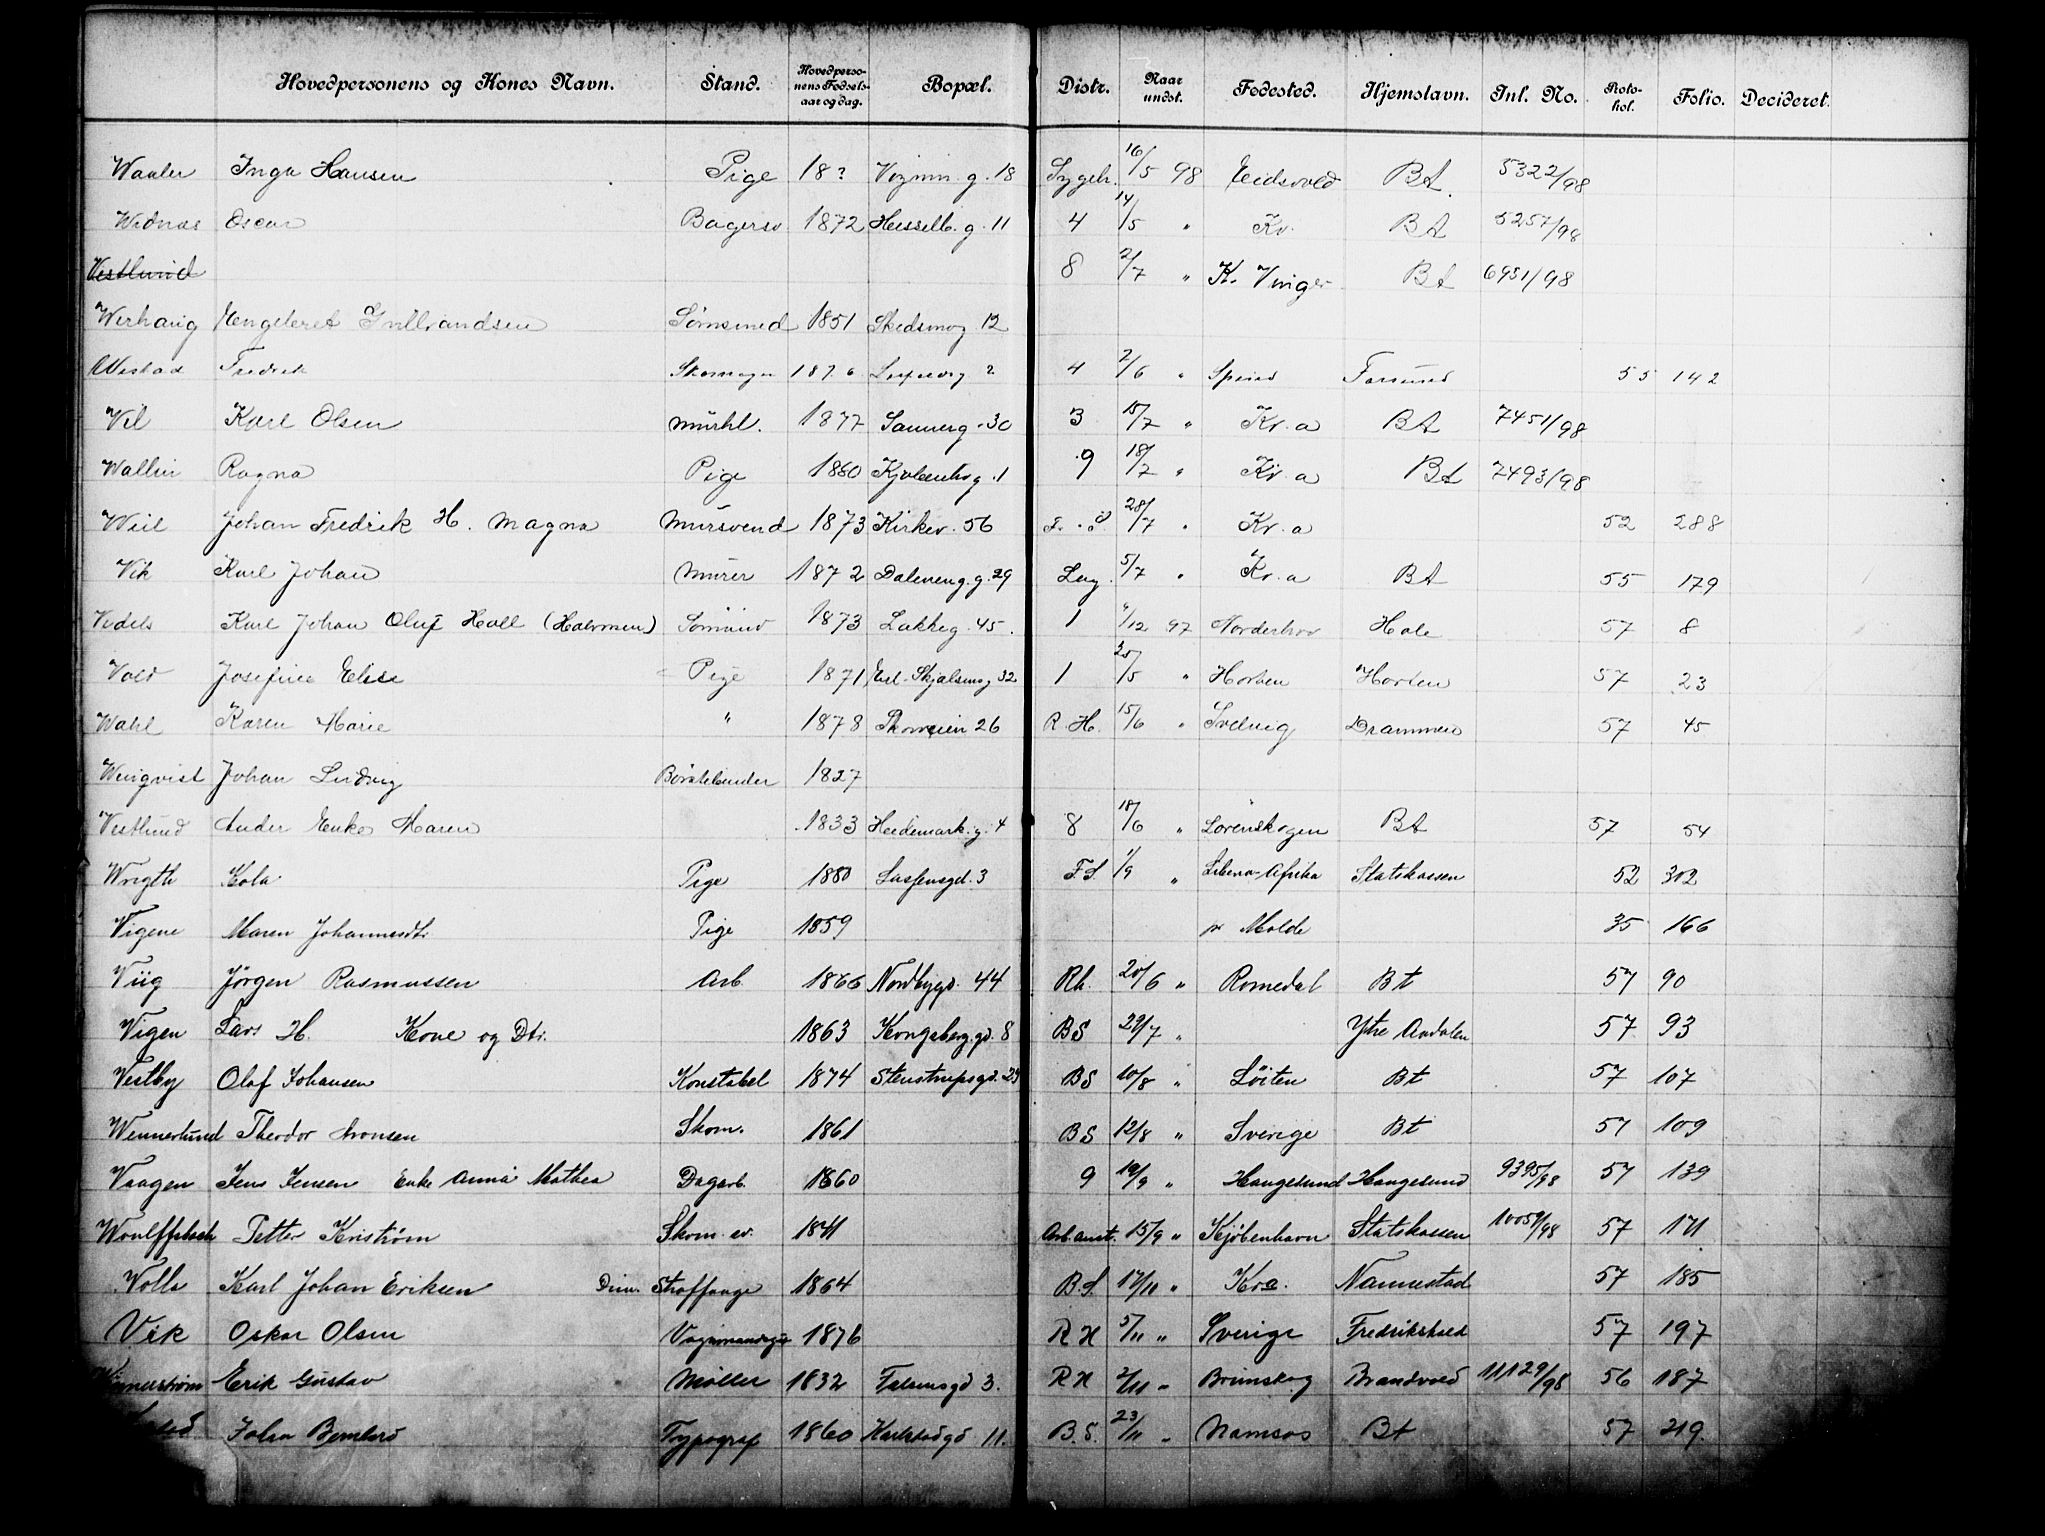 Hovedpersonens og Kones Navn. Stand. Hovedpersonens Fødselsaar og dag. Bopæl. Distr. Naar undst. Fødested. Hjemstavn. Inl. No. Protokol. Folio. Decideret.
Waaler Inga Hansen Pige 18? Vognm. g. 18 Sygeh. 16/5 98 Eidsvold Bt. 5322/98
Widnæs Oscar Bagersv 1872 Hesselb. g. 11 4 14/5 " Kr. Bt 5257/98
Vestlund 8 2/7 " K. Vinger Bt 6951/98
Werhaug Engebret Gulbrandsen Sømsmed 1851 Skedsmog 12
Westad Fredrik Skomager 1876 2 4 7/6 " Spind Farsund 55 142
Vel Karl Olsen Murhl. 1877 Sannerg. 30 3 15/7 " Kr.a Bt 7451/98
Wallin Ragna Pige 1880 Kjølberg. 1 9 18/7 " Kr.a Bt 7493/98
Wiil Johan Fredrik H. Magna Mursvend 1873 Kirkev. 56 28/7 " Kr.a 52 288
Vik Karl Johan Murer 1872 Daleneng. g. 29 Leg. 5/7 " Kr.a Bt 55 179
Karl Johan Oluf Hall (Halvorsen) Sømand 1873 Lakkeg. 45. 1 /12 97 Norderhov Hole 57 8
Vold Josefine Elise Pige 1871 Erl. Skjalsøns g 32 1 25/5 " Horten Horten 57 23
Wahl Karen Marie " 1878 Thomveien 26 R.H. 15/6 " Svelvig Drammen 57 45
Wenqvist Johan Ludvig Børstebinder 1827
Vestlund Ander Enke Maren 1833 Hedemark. g. 4 8 18/6 " Lørenskogen Bt 57 54
Wrigth Kola Pige 1880 Lassensgd. 3 F.S. 1/9 " Liberia-Afrika Statskassen 52 302
Vigene Maren Johannesdtr. Pige 1859 pr Molde 35 166
Viig Jørgen Rasmussen Arb. 1866 Nordbygd. 44 Rh. 20/6 " Romedal Bt 57 90
Vigen Lars H. Kone og Dtr. 1863 Kongsberg. gd. 8 BS 29/7 " Ytre Aadalen 57 93
Vestby Olaf Johansen Konstabel 1874 Stenstrupsgd. 23 BS 10/8 " Løiten Bt 57 107
Wennerlund Theodor Aronsen Skom. 1861 BS 12/8 " Sverige Bt 57 109
Vaagen Jens Jensen Enke Anna Mathea Dagarb. 1860 9 19/9 " Haugesund Haugesund 9395/98 57 139
Petter Kriström Skom. sv. 1841 Arb. anst. 15/9 " Kjøbenhavn Statskassen 10059/98 57 171
Wolls Karl Johan Eriksen Dim. Straffange 1864 B.S. 17/11 " Kra. Nannestad 57 185
Vik Oskar Olsen Vognmandsgut 1876 RH 5/11 " Sverige Fredrikshald 57 197
Erik Gustav Møller 1832 Falsensgd 3. RH 2/11 " Brunskog Brandvold 11129/98 56 187
Johan Typograf 1860 Karlstadgd 11. B.S. 23/11 " Namsos Bt 57 219.